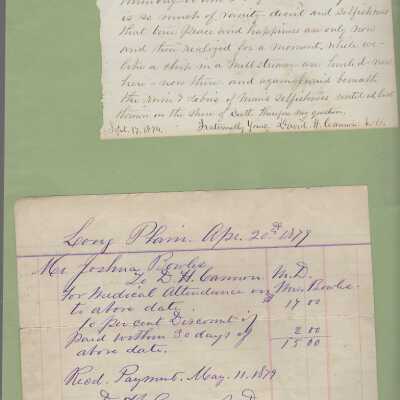 is so much of vanity deceit and selfishness
that true peace and happiness are only now
and then realized for a moment, while we
like a chip in a mill stream are tossed now
here – now there and again forced beneath
the ruin & debris of man's selfishness until at last
thrown on the shore of
Sept. 17, 1874. Fraternally Yours David H. Cannon M.D.
Long Plain. Apr. 20th 1879
Mr Joshua Bowles
To D. H. Cannon M.D.
For Medical Attendance on Mrs Bowles
to above date. $ 17 00
10 per cent Discount if
paid within 30 days of 2 00
above date. 15 00
Recd. Payment. May. 11. 1879